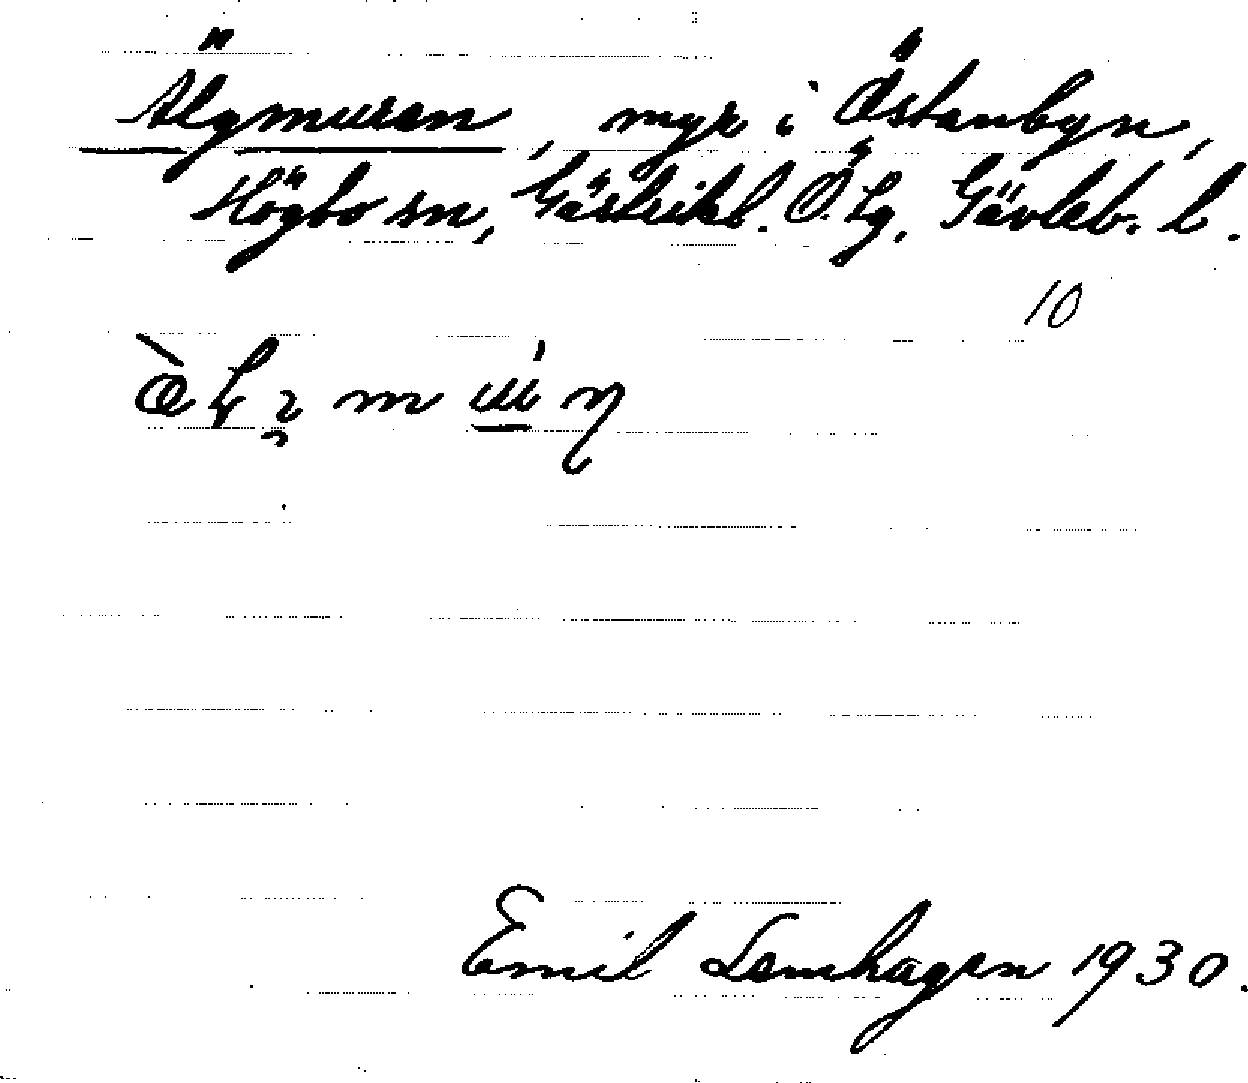 Älgmuren, myr i Östanbyn,
Högbo sn, Gästrikl. Ö. Lg. Gävleb. l.
10
Emil Lemhagen 1930.